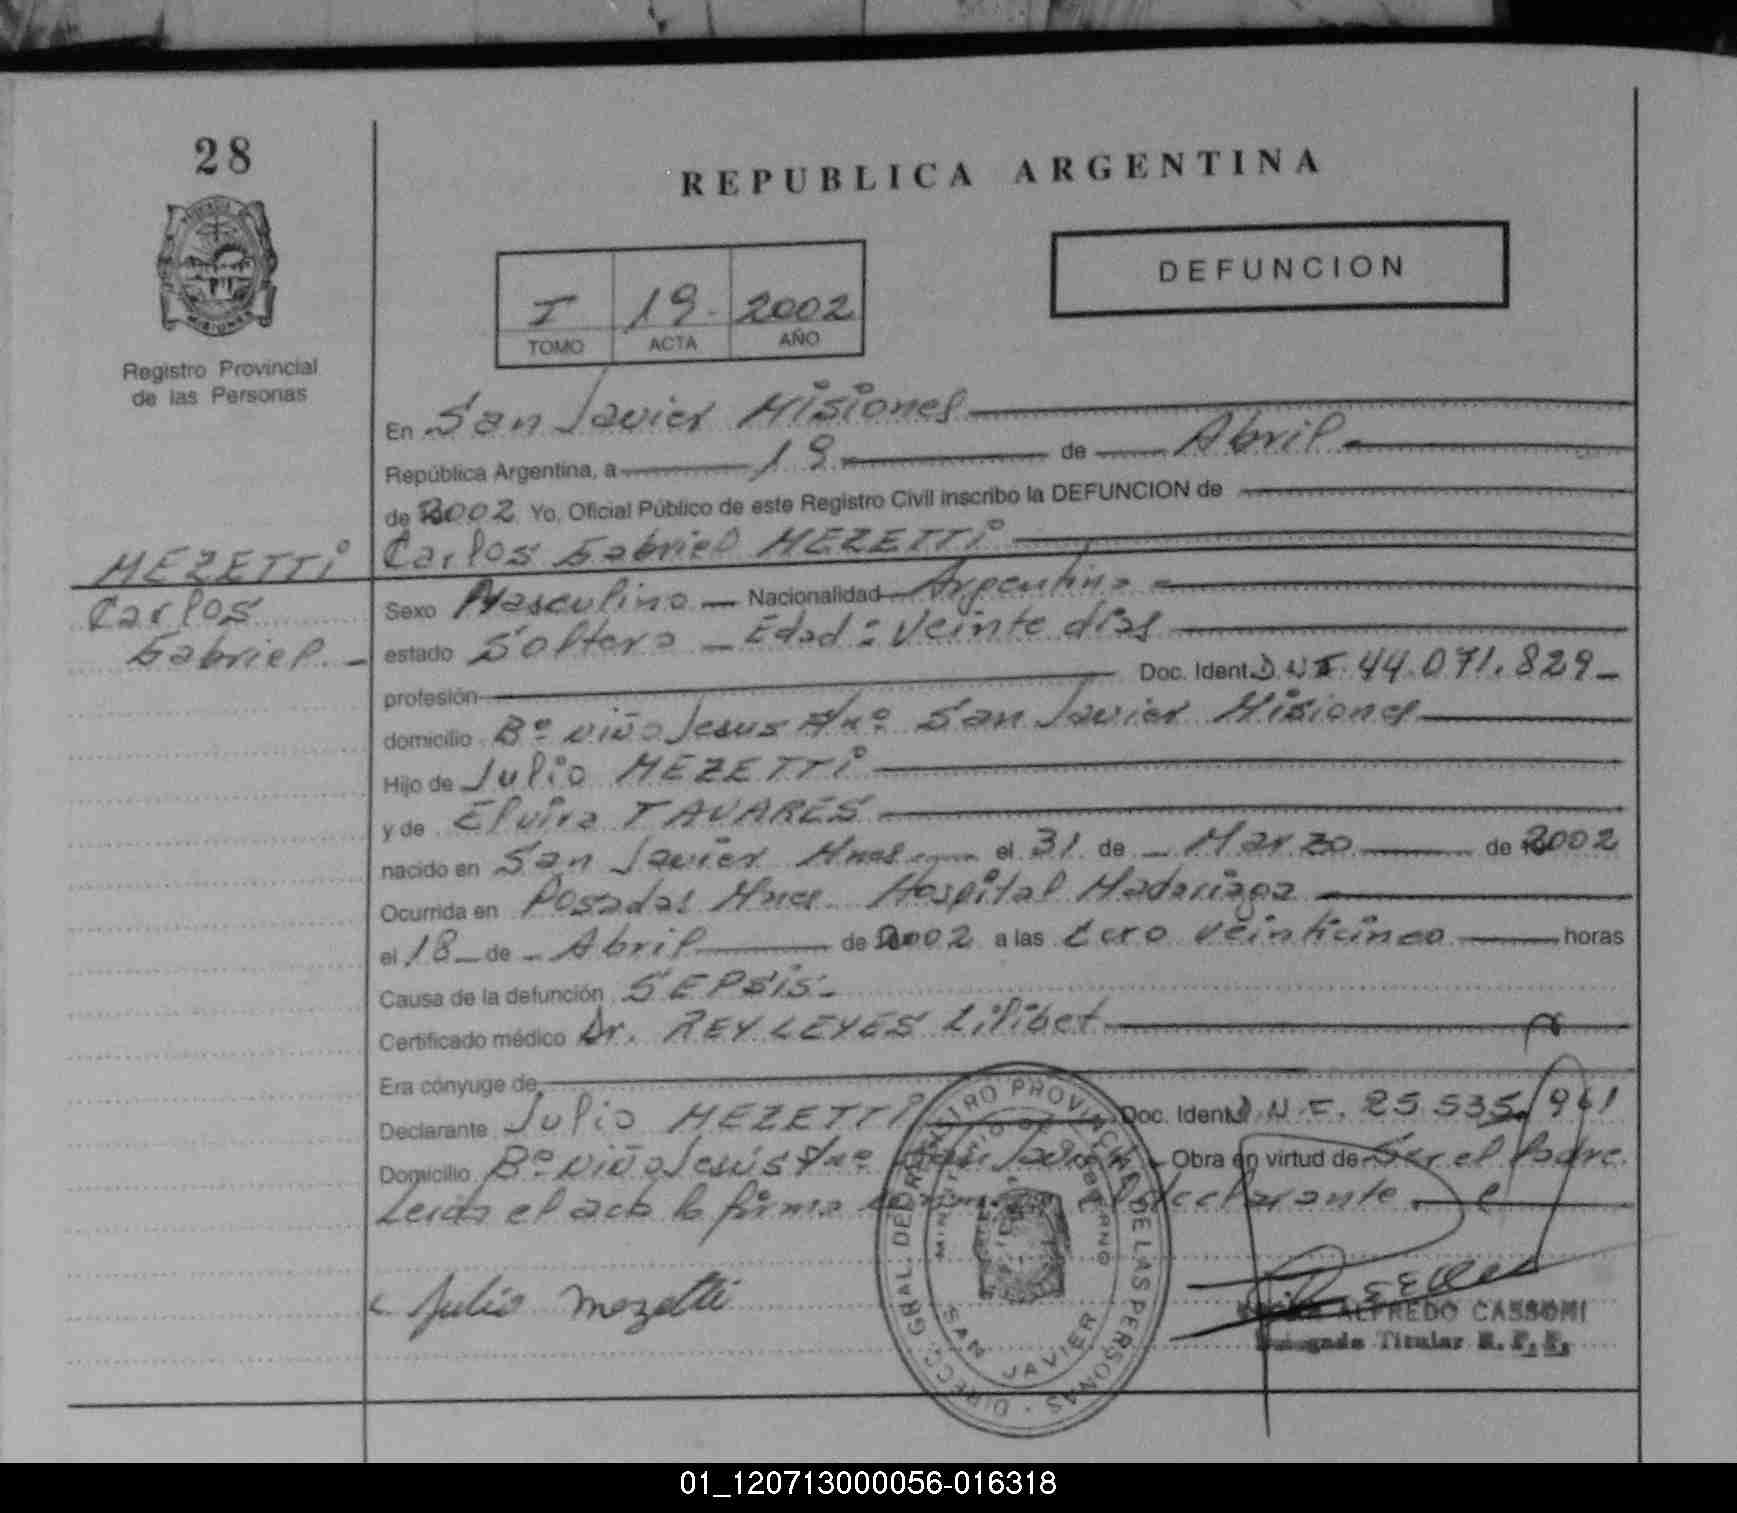 28
REPUBLICA ARGENTINA
DEFUNCION
I 19 2002
TOMO ACTA AÑO
Registro Provincial
de las Personas
En San Javier Misiones
República Argentina, a 19 de Abril
de 2002 Yo, Oficial Público de este Registro Civil inscribo la DEFUNCION de
MEZETTI
Carlos
Gabriel
Carlos Gabriel MEZETTI
Sexo Masculino Nacionalidad Argentina
estado Soltero - Edad: Veinte dias
profesión Doc. Ident. D.N.I. 44.071.829
domicilio Bº niño Jesus San Javier Misiones
Hijo de Julio MEZETTI
y de Elvira TAVARES
nacido en San Javier Mnes. el 31 de Marzo de 2002
Ocurrida en Posadas Mnes. Hospital Madariaga
el 18 de Abril de 2002 a las Cero veinticinco horas
Causa de la defunción SEPSIS
Certificado médico Dr. REY LEYES Lilibet
Era cónyuge de
Declarante Julio MEZETTI Doc. Ident. D.N.I. 25.535.961
Domicilio Bº niño Jesús San Javier Obra en virtud de Ser el Padre.
Leida el acta la firma el declarante
Julio Mezetti
DIRECC. GRAL. DEL REGISTRO PROVINCIAL DE LAS PERSONAS
MINISTERIO DE GOBIERNO
SAN JAVIER
ALFREDO CASSONI
Delegado Titular R. P. P.
MISIONES
01_120713000056-016318